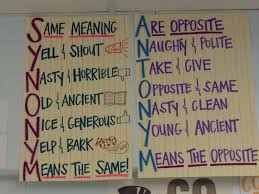 SAME MEANING
YELL & SHOUT
NASTY & HORRIBLE
OLD & ANCIENT
NICE & GENEROUS
YELP & BARK
MEANS THE SAME!
ARE OPPOSITE
NAUGHTY & POLITE
TAKE & GIVE
OPPOSITE & SAME
NASTY & CLEAN
YOUNG & ANCIENT
MEANS THE OPPOSITE